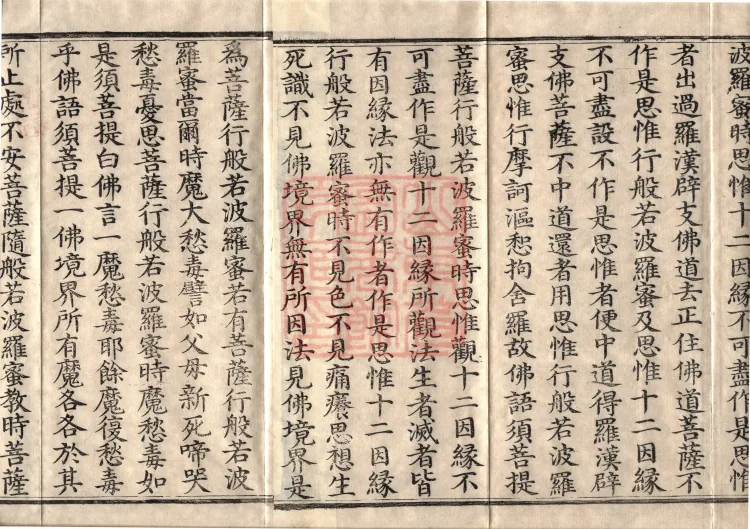 波羅蜜時思惟十二因緣不可盡作是思惟
者出過羅漢辟支佛道去正住佛道菩薩不
作是思惟行般若波羅蜜及思惟十二因緣
不可盡設不作是思惟者便中道得羅漢辟
支佛菩薩不中道還者用思惟行般若波羅
蜜思惟行摩訶漚惒拘舍羅故佛語須菩提
菩薩行般若波羅蜜時思惟觀十二因緣不
可盡作是觀十二因緣所觀法生者滅者皆
有因緣法亦無有作者作是思惟十二因緣
行般若波羅蜜時不見色不見痛癢思想生
死識不見佛境界無有所因法見佛境界是
為菩薩行般若波羅蜜若有菩薩行般若波
羅蜜當爾時魔大愁毒譬如父母新死啼哭
愁毒憂思菩薩行般若波羅蜜時魔愁毒如
是須菩提白佛言一魔愁毒耶餘魔復愁毒
乎佛語須菩提一佛境界所有魔各各於其
所止處不安菩薩隨般若波羅蜜教時菩薩